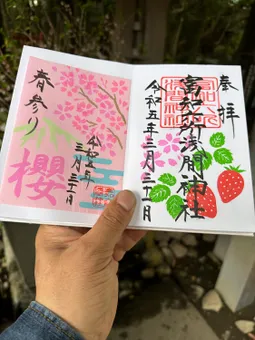 奉拝
富知六所浅間神社
令和五年三月三十一日
春参り
令和五年
三月三十一日
櫻